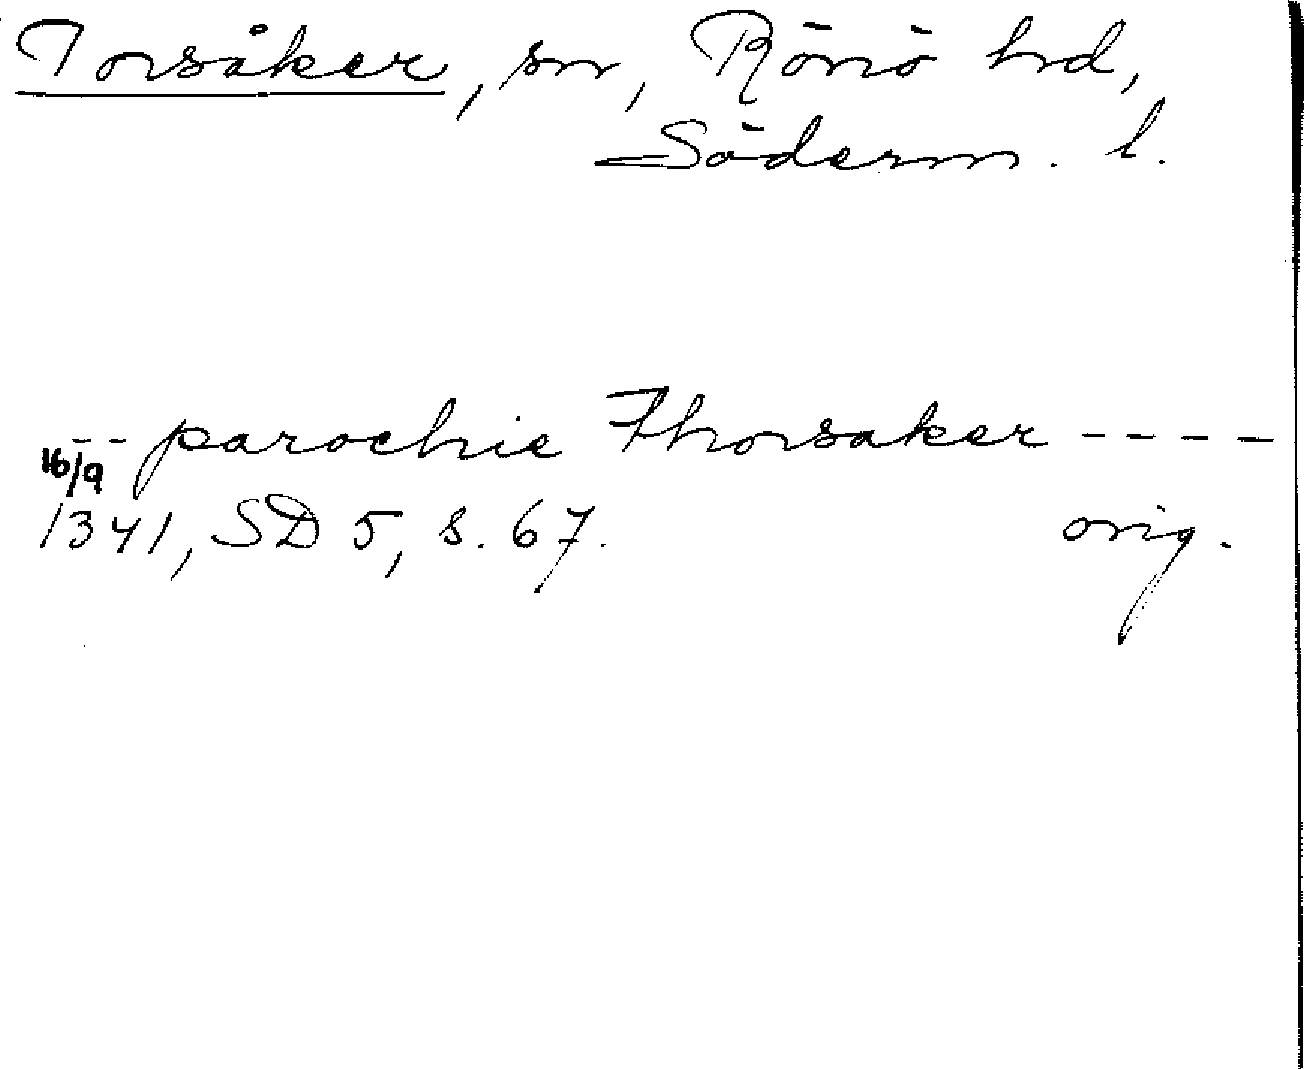 Torsåker, sn, Rönö hd,
Söderm. l.
-- parochie Thorsaker ----
16/9
1341, SD 5, s. 67. orig.